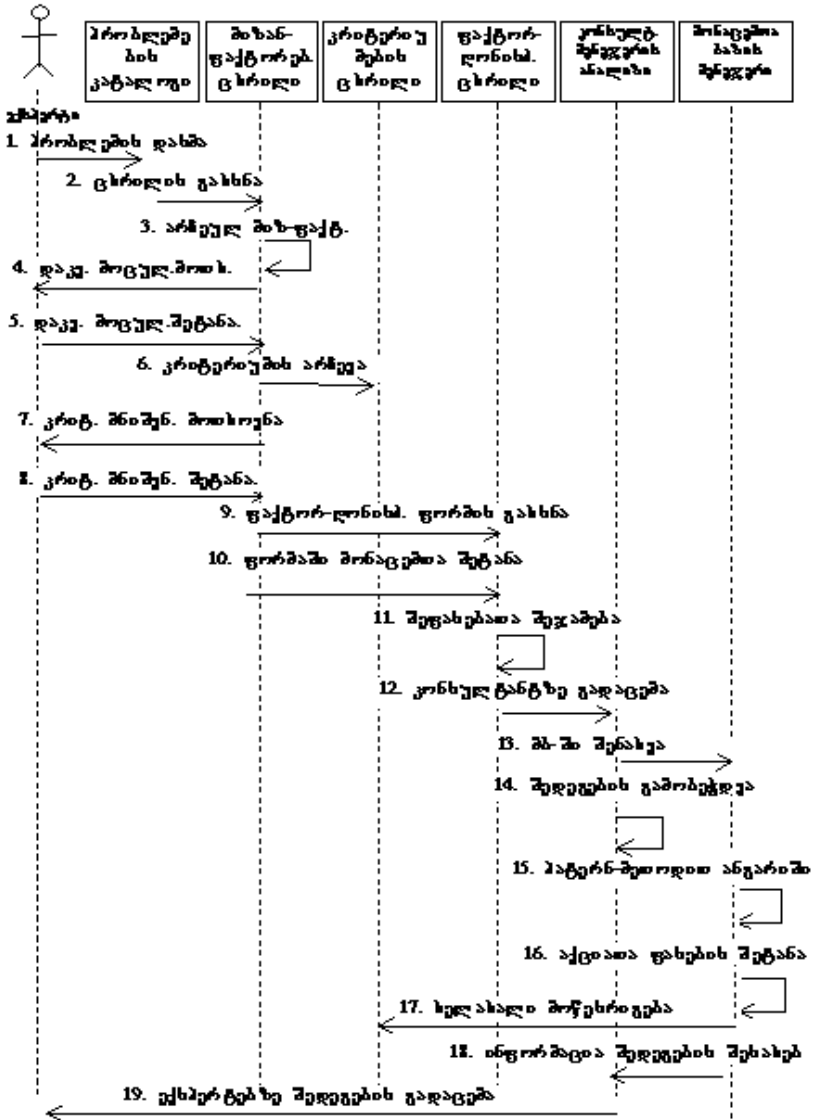 პრობლემე
ბის
კატალოგი
მიზან-
ფაქტორებ.
ცხრილი
კრიტერიუ
მების
ცხრილი
ფაქტორ-
ღონისძ.
ცხრილი
კონსულტ-
მენეჯერის
ანალიზი
მონაცემთა
ბაზის
მენეჯერი
ექსპერტი
1. პრობლემის დასმა
2. ცხრილის გახსნა
3. არჩეულ მიზ-ფაქტ.
4. დაკვ. მოცულ.მოთხ.
5. დაკვ. მოცულ.შეტანა.
6. კრიტერიუმის არჩევა
7. კრიტ. მნიშვნ. მოთხოვნა
8. კრიტ. მნიშვნ. შეტანა.
9. ფაქტორ-ღონისძ. ფორმის გახსნა
10. ფორმაში მონაცემთა შეტანა
11. შეფასებათა შეჯამება
12. კონსულტანტზე გადაცემა
13. მბ-ში შენახვა
14. შედეგების გამობეჭდვა
15. პატერნ-მეთოდით ანგარიში
16. აქციათა ფასების შეტანა
17. ხელახალი მოწესრიგება
18. ინფორმაცია შედეგების შესახებ
19. ექსპერტებზე შედეგების გადაცემა